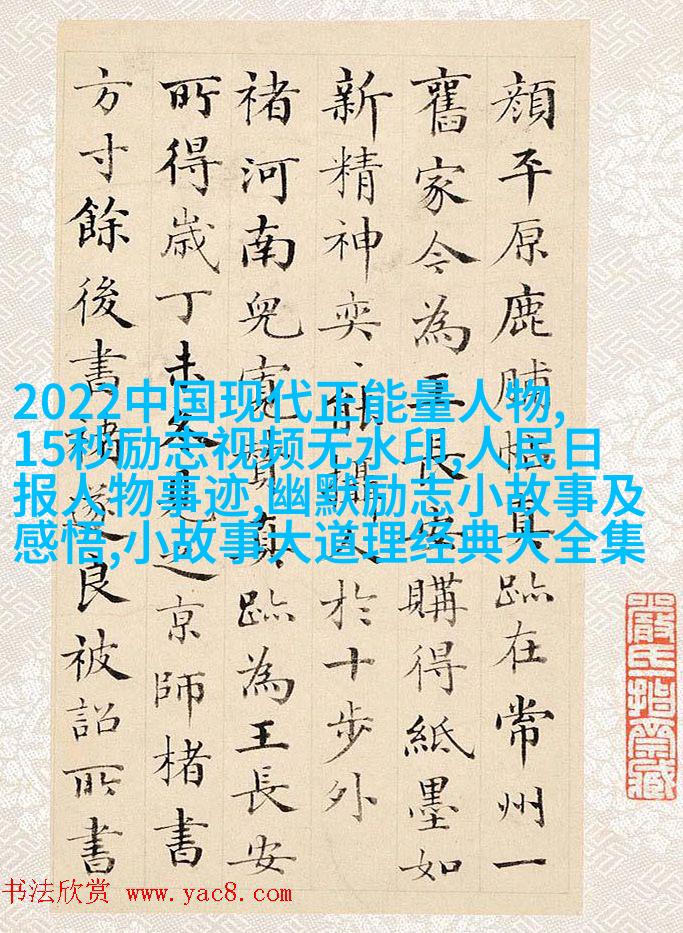 顔平原鹿脯帖真跡在常州一
舊家今為王長安購得紙墨如
新精神奕、能攝人於十步外
褚河南兒寬贊真跡為王長安
所得歲丁未冬見之京師楮書
方寸餘後書褚遂良被詔所書
2022中国现代正能量人物,
15秒励志视频无水印,人民日
报人物事迹,幽默励志小故事及
感悟,小故事大道理经典大全集
书法欣赏 www.yac8.com